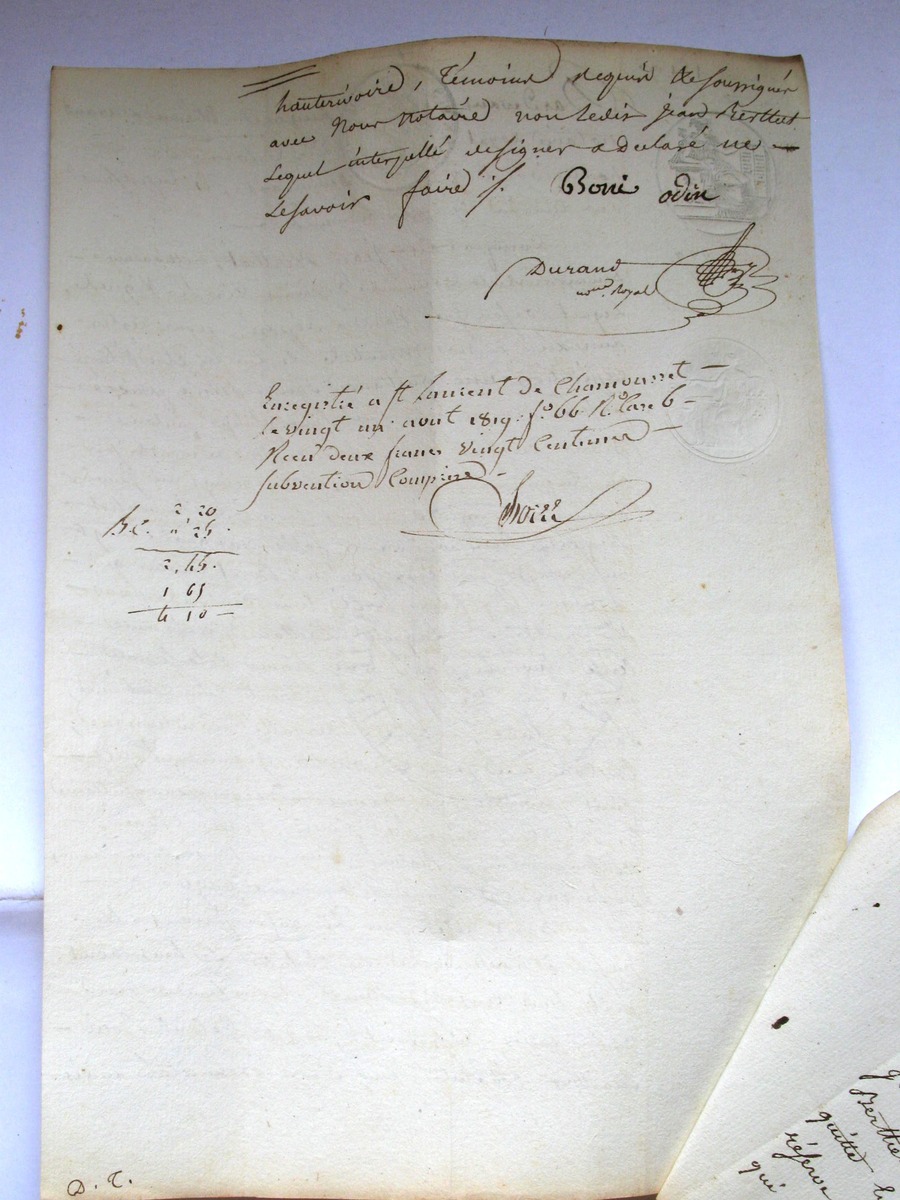 hauterivoire, témoins requis & soussignés
avec Nous Notaire non ledit jean Berthet
Lequel interpellé de signer a declaré ne
le savoir faire ./.
Boni odin
Durand
no.re Royal
Enregistré a st Laurent de Chamousset
le vingt un avril 1819. fo. 66. Ro. Case 6
Recu deux francs vingt Centimes
subvention Comprise
2 20
" 25.
2,45.
1 65
4 10
D. T.
Berthe
quitte
réserve
qui